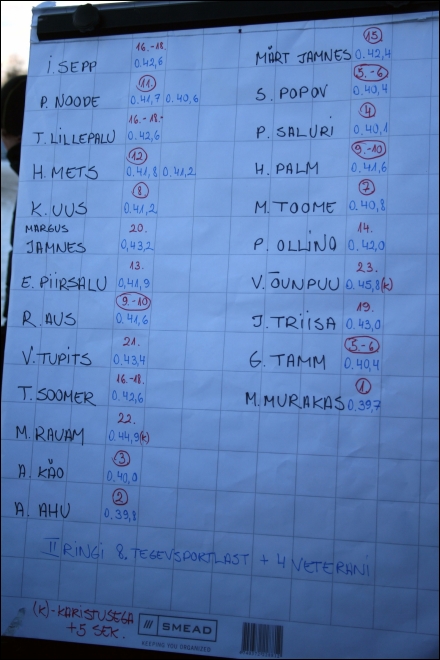 16.-18.
I. SEPP 0.42,6
11.
P. NOODE 0.41,7 0.40,6
16.-18.
T. LILLEPALU 0.42,6
12
H. METS 0.41,8 0.41,2
8
K. UUS 0.41,2
MARGUS 20.
JAMNES 0,43,2
13.
E. PIIRSALU 0.41,9
9.-10
R. AUS 0.41,6
21.
V. TUPITS 0.43,4
16.-18.
T. SOOMER 0.42,6
22.
M. RAVAM 0.44,9(k)
3
A. KÄO 0.40,0
2
A. AHU 0.39,8
15
MÄRT JAMNES 0.42,4
5.-6
S. POPOV 0.40,4
4
P. SALURI 0.40,1
9.-10
H. PALM 0.41,6
7
M. TOOME 0.40,8
14.
P. OLLINO 0.42,0
23.
V. ÕUNPUU 0.45,8(k)
19.
J. TRIISA 0.43,0
5.-6
G. TAMM 0.40,4
1
M. MURAKAS 0.39,7
II RINGI 8. TEGEVSPORTLAST + 4 VETERANI
(K)-KARISTUSEGA
+5 SEK.
SMEAD
KEEPING YOU ORGANIZED